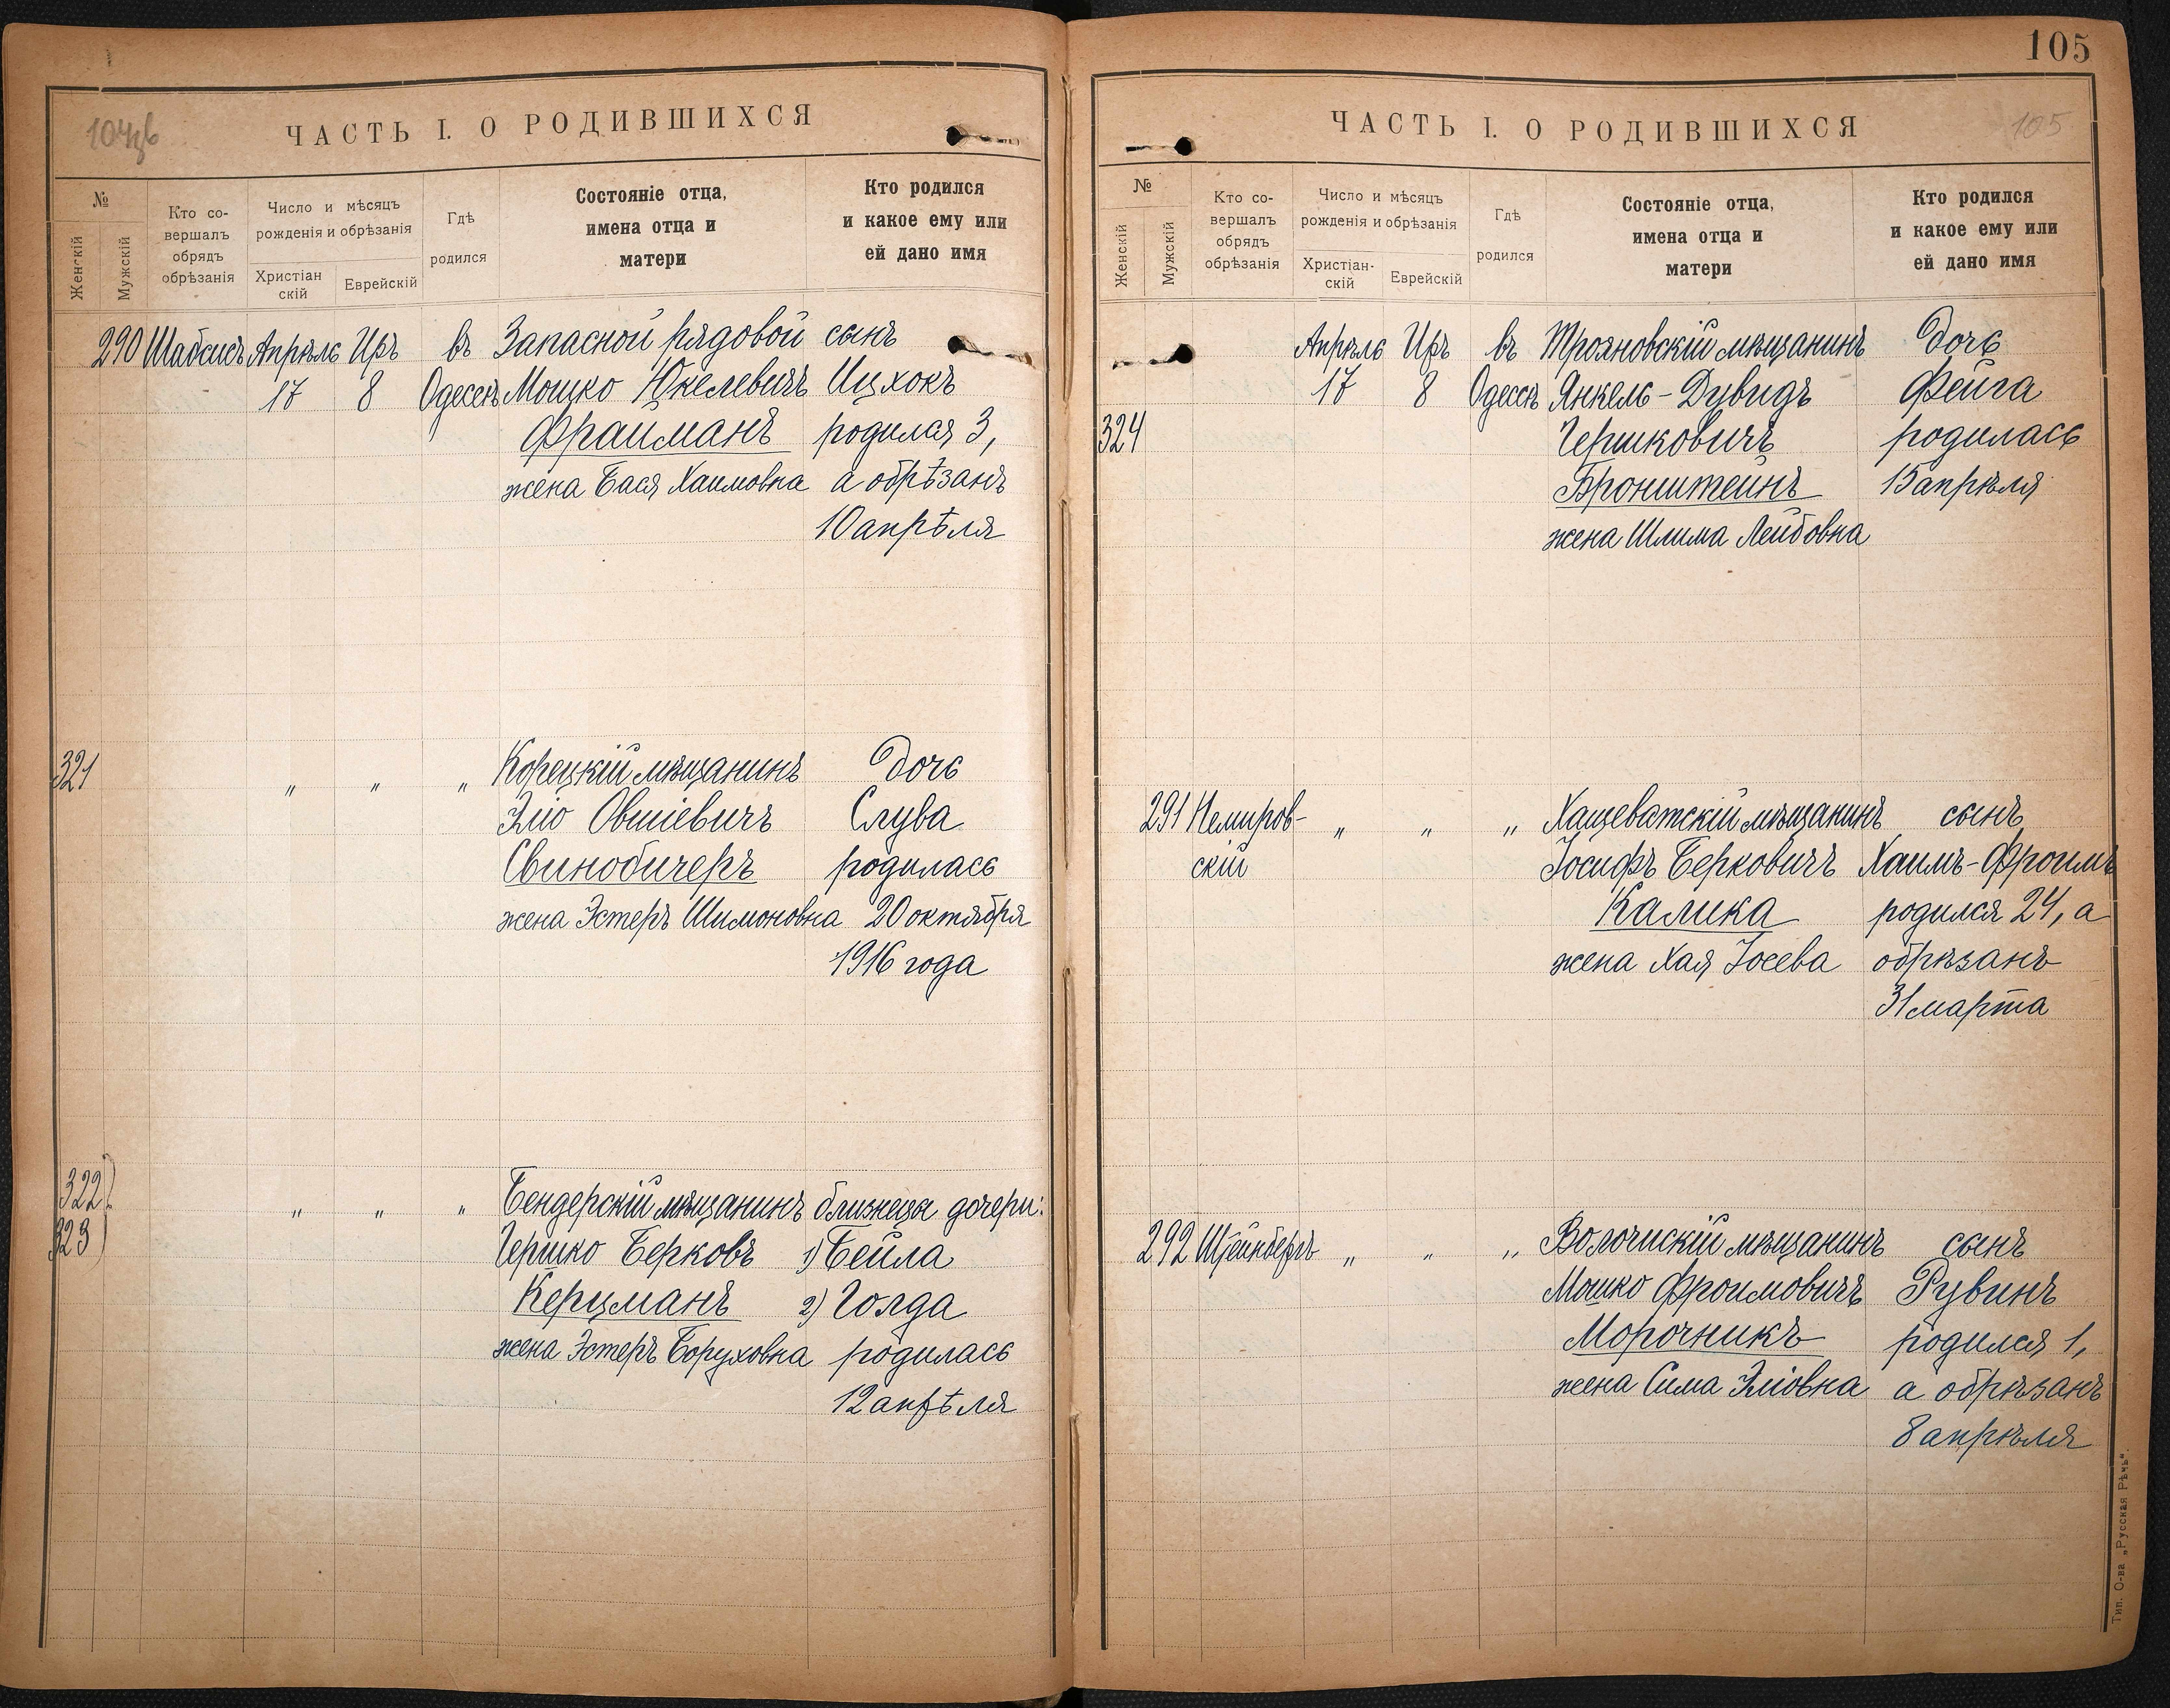 104об
ЧАСТЬ I. О РОДИВШИХСЯ
№
Женскій
Мужскій
Кто со-
вершалъ
обрядъ
обрѣзанія
Число и мѣсяцъ
рожденія и обрѣзанія
Христіан
скій
Еврейскій
Гдѣ
родился
Состояніе отца,
имена отца и
матери
Кто родился
и какое ему или
ей дано имя
290 Шабсисъ Апрѣль Иръ въ Запасной рядовой сынъ
17 8 Одессѣ Мошко Юкелевичъ Ицхокъ
Фрайманъ родился 3,
жена Бася Хаимовна а обрѣзанъ
10 апрѣля
321 " " " Корецкій мѣщанинъ дочь
Эліо Овшіевичъ Слува
Свинобичеръ родилась
жена Эстеръ Шимоновна 20 октября
1916 года
322 " " " Бендерскій мѣщанинъ близнецы дочери:
323 Гершко Берковъ 1) Бейла
Керцманъ 2) Голда
жена Эстеръ Боруховна родилась
12 апрѣля
105
ЧАСТЬ I. О РОДИВШИХСЯ
105
№
Женскій
Мужскій
Кто со-
вершалъ
обрядъ
обрѣзанія
Число и мѣсяцъ
рожденія и обрѣзанія
Христіан-
скій
Еврейскій
Гдѣ
родился
Состояніе отца,
имена отца и
матери
Кто родился
и какое ему или
ей дано имя
Апрѣль Иръ въ Трояновскій мѣщанинъ дочь
17 8 Одессѣ Янкель-Дувидъ Фейга
324 Гершковичъ родилась
Бронштейнъ 15 апрѣля
жена Шлима Лейбовна
291 Немиров- " " " Хащеватскій мѣщанинъ сынъ
скій Іосифъ Берковичъ Хаимъ-Фроимъ
Калика родился 24, а
жена Хая Іосева обрѣзанъ
31 марта
292 Штейнбергъ " " " Волочискій мѣщанинъ сынъ
Мошко Фроимовичъ Рувинъ
Морочникъ родился 1,
жена Сима Эліовна а обрѣзанъ
8 апрѣля
Тип. О-ва „Русская Рѣчь“.